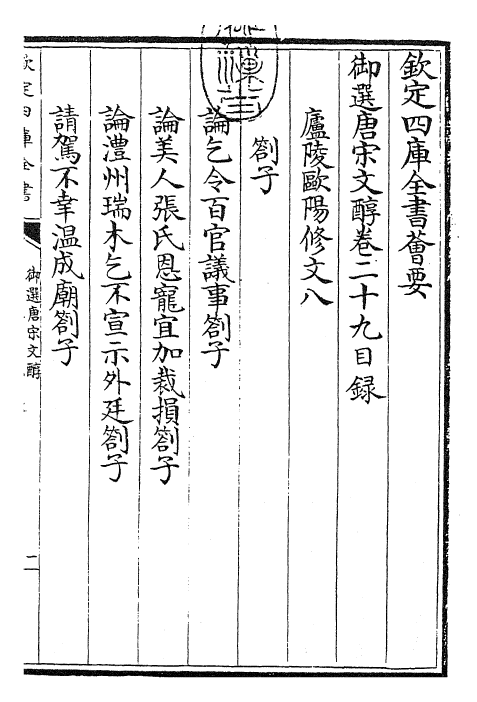 欽定四庫全書薈要
御選唐宋文醇卷二十九目録
廬陵歐陽修文八
劄子
論乞令百官議事劄子
論美人張氏恩寵宜加裁損劄子
論澧州瑞木乞不宣示外廷劄子
請駕不幸温成廟劄子
欽定四庫全書
御選唐宋文醇
二